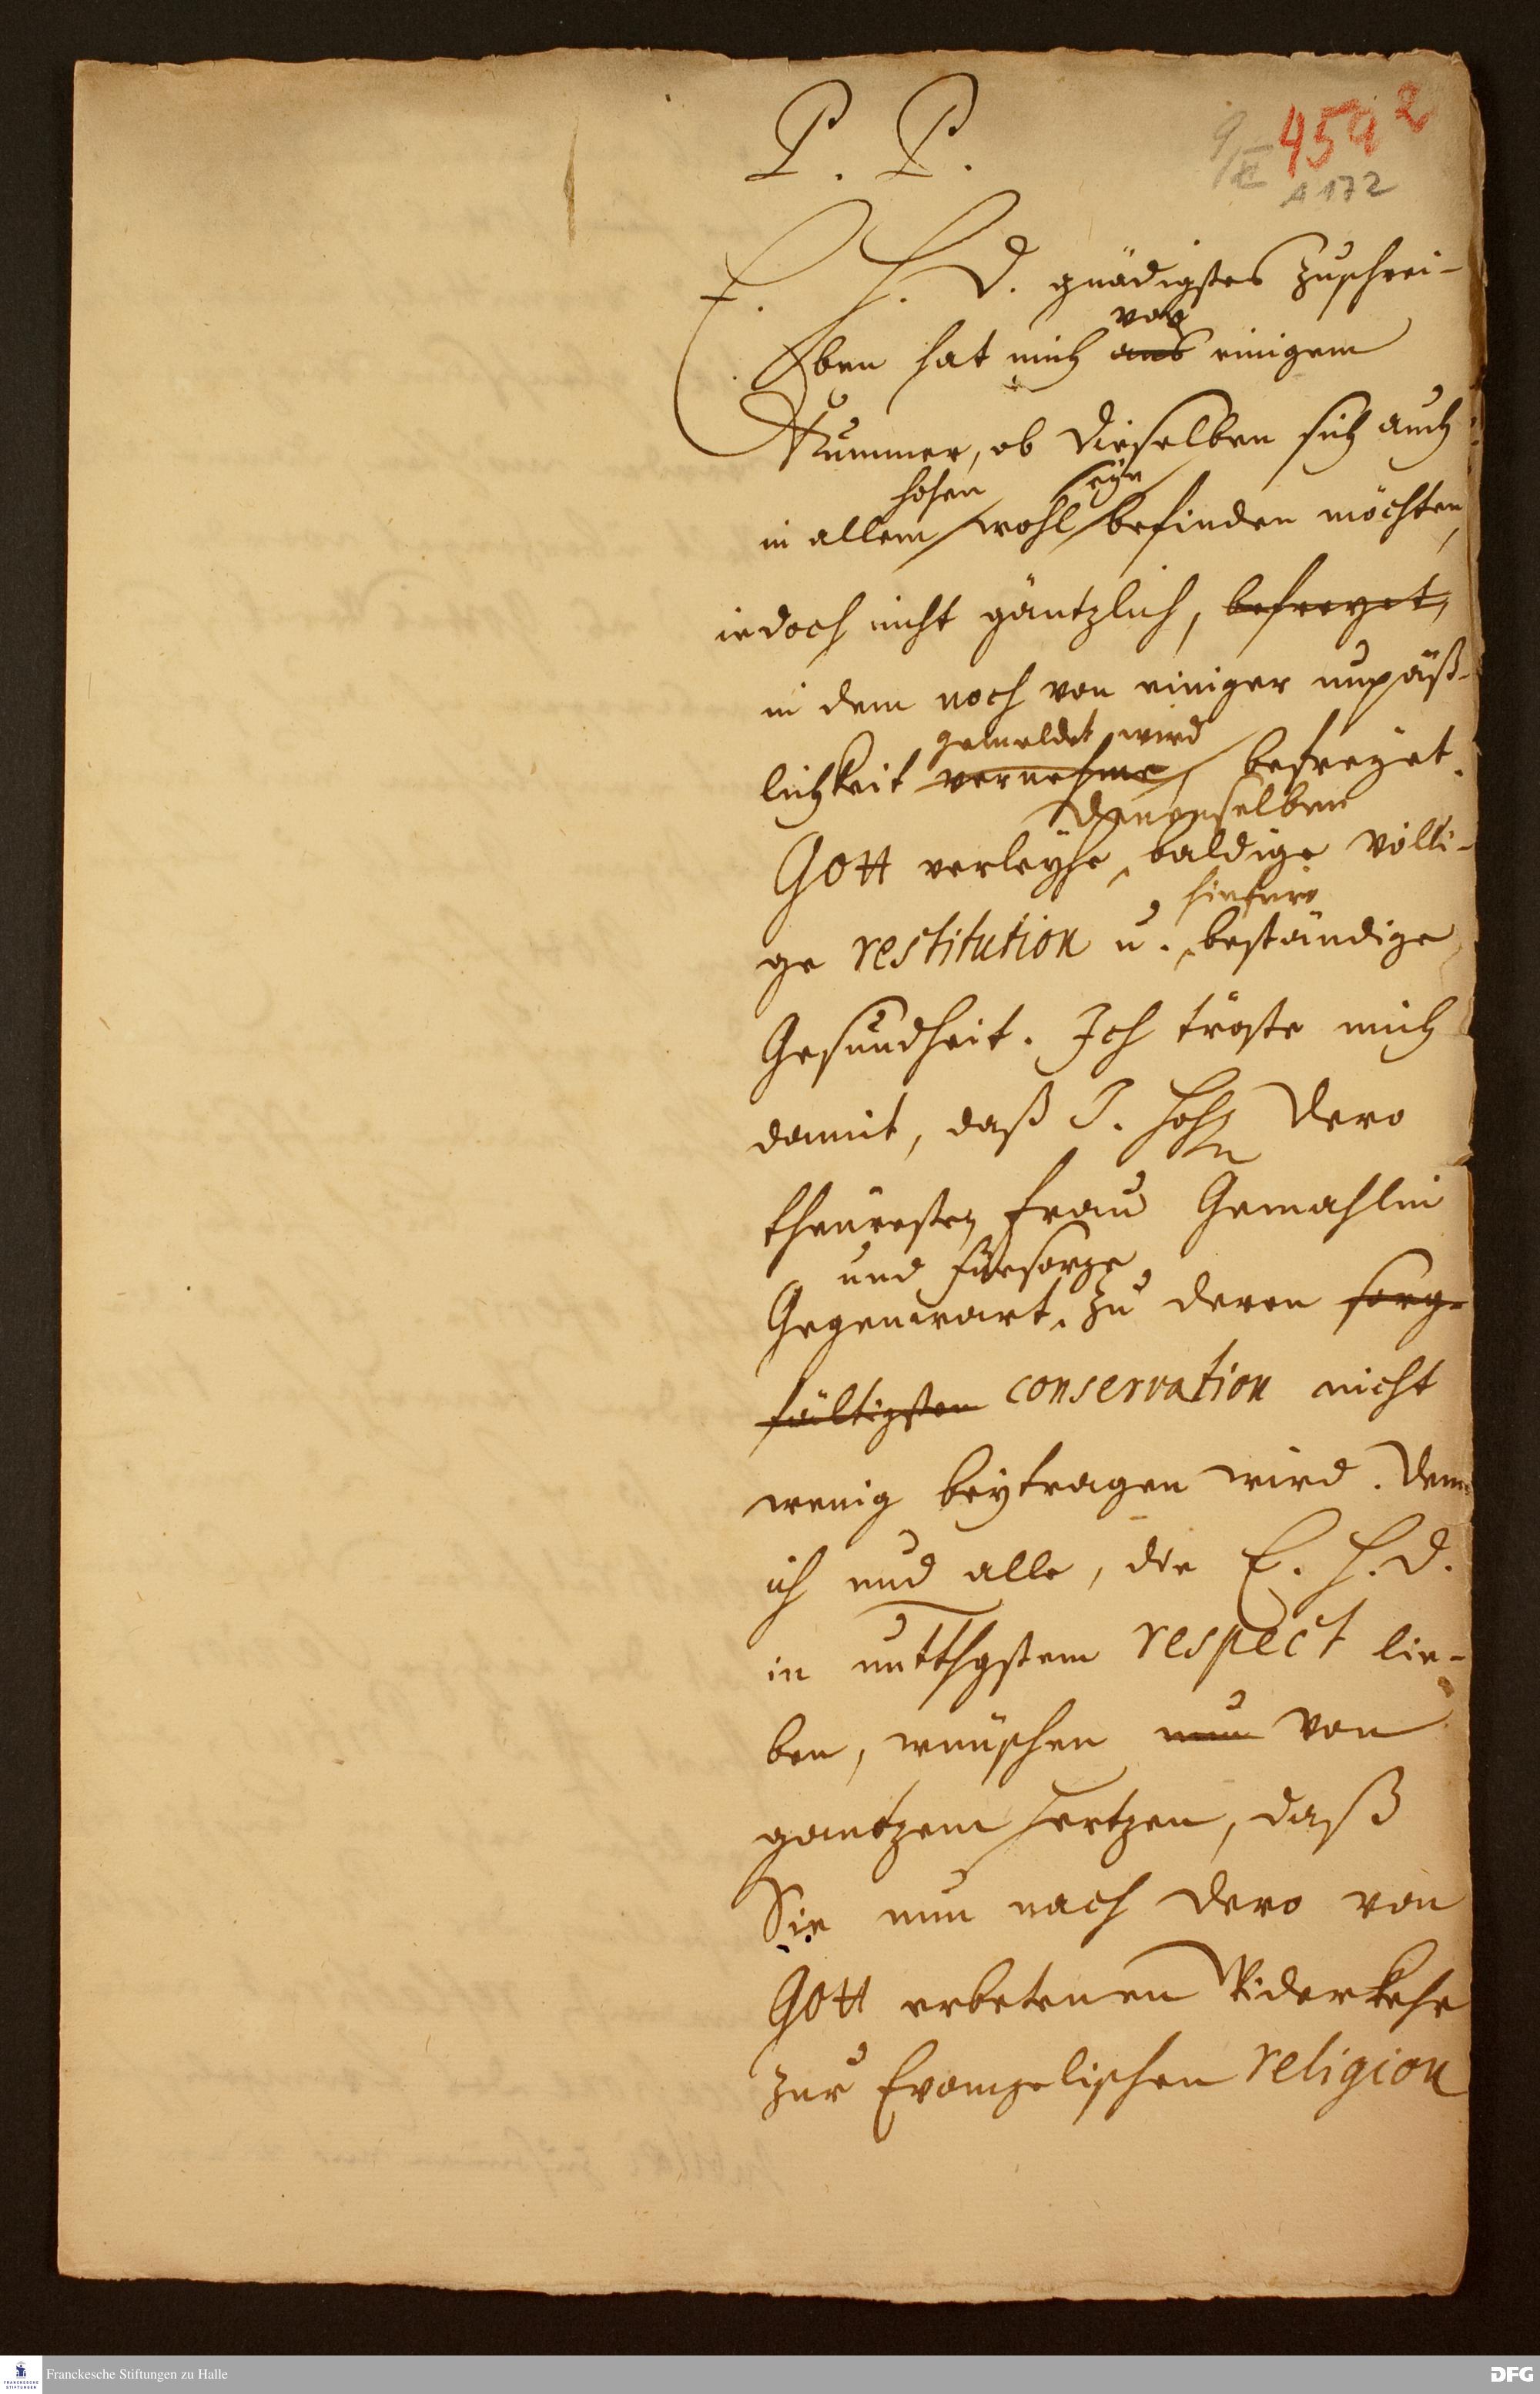 P. P.
459 2
9/II
A 172
E. H. D. gnädigstes Zuschrei-
von
ben hat mich aus einigem
Kummer, ob dieselben sich auch
hohen seyn
in allem wohl befinden möchten,
iedoch nicht gäntzlich, befreyet,
in dem noch von einiger unpäß-
gemeldet wird
lichkeit vernehme, befreyet.
Denenselben
Gott verleyhe baldige völli-
hinfüro
ge restitution u. beständige
Gesundheit. Ich tröste mich
damit, daß I. Hoh. Dero
theüresten Frau Gemahlin
und Fürsorge
Gegenwart zu deren sorg-
fältigsten conservation nicht
wenig beytragen wird. Denn
ich und alle, die E. H. D.
in untthgstem respect lie-
ben, wünschen nun von
gantzem Hertzen, daß
Sie nun nach Dero von
Gott erbetenen Widerkehr
zur Evangelischen religion
Franckesche Stiftungen zu Halle
FRANCKESCHE STIFTUNGEN
DFG